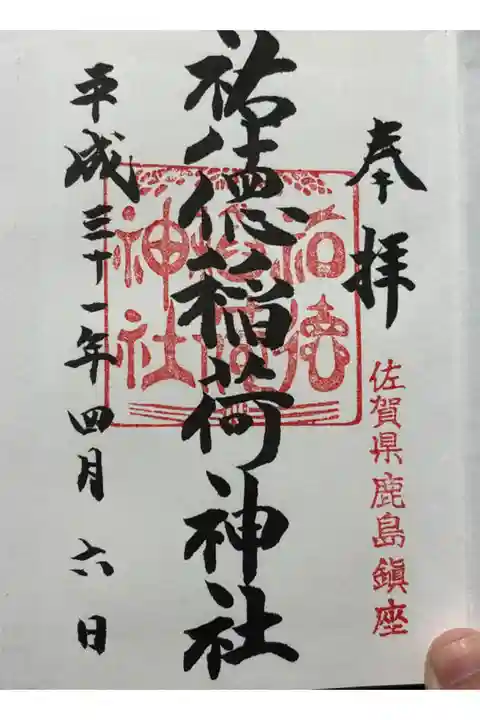 奉拝
佐賀県鹿島鎮座
祐徳稲荷神社
祐徳
稲荷
神社
平成三十一年四月六日